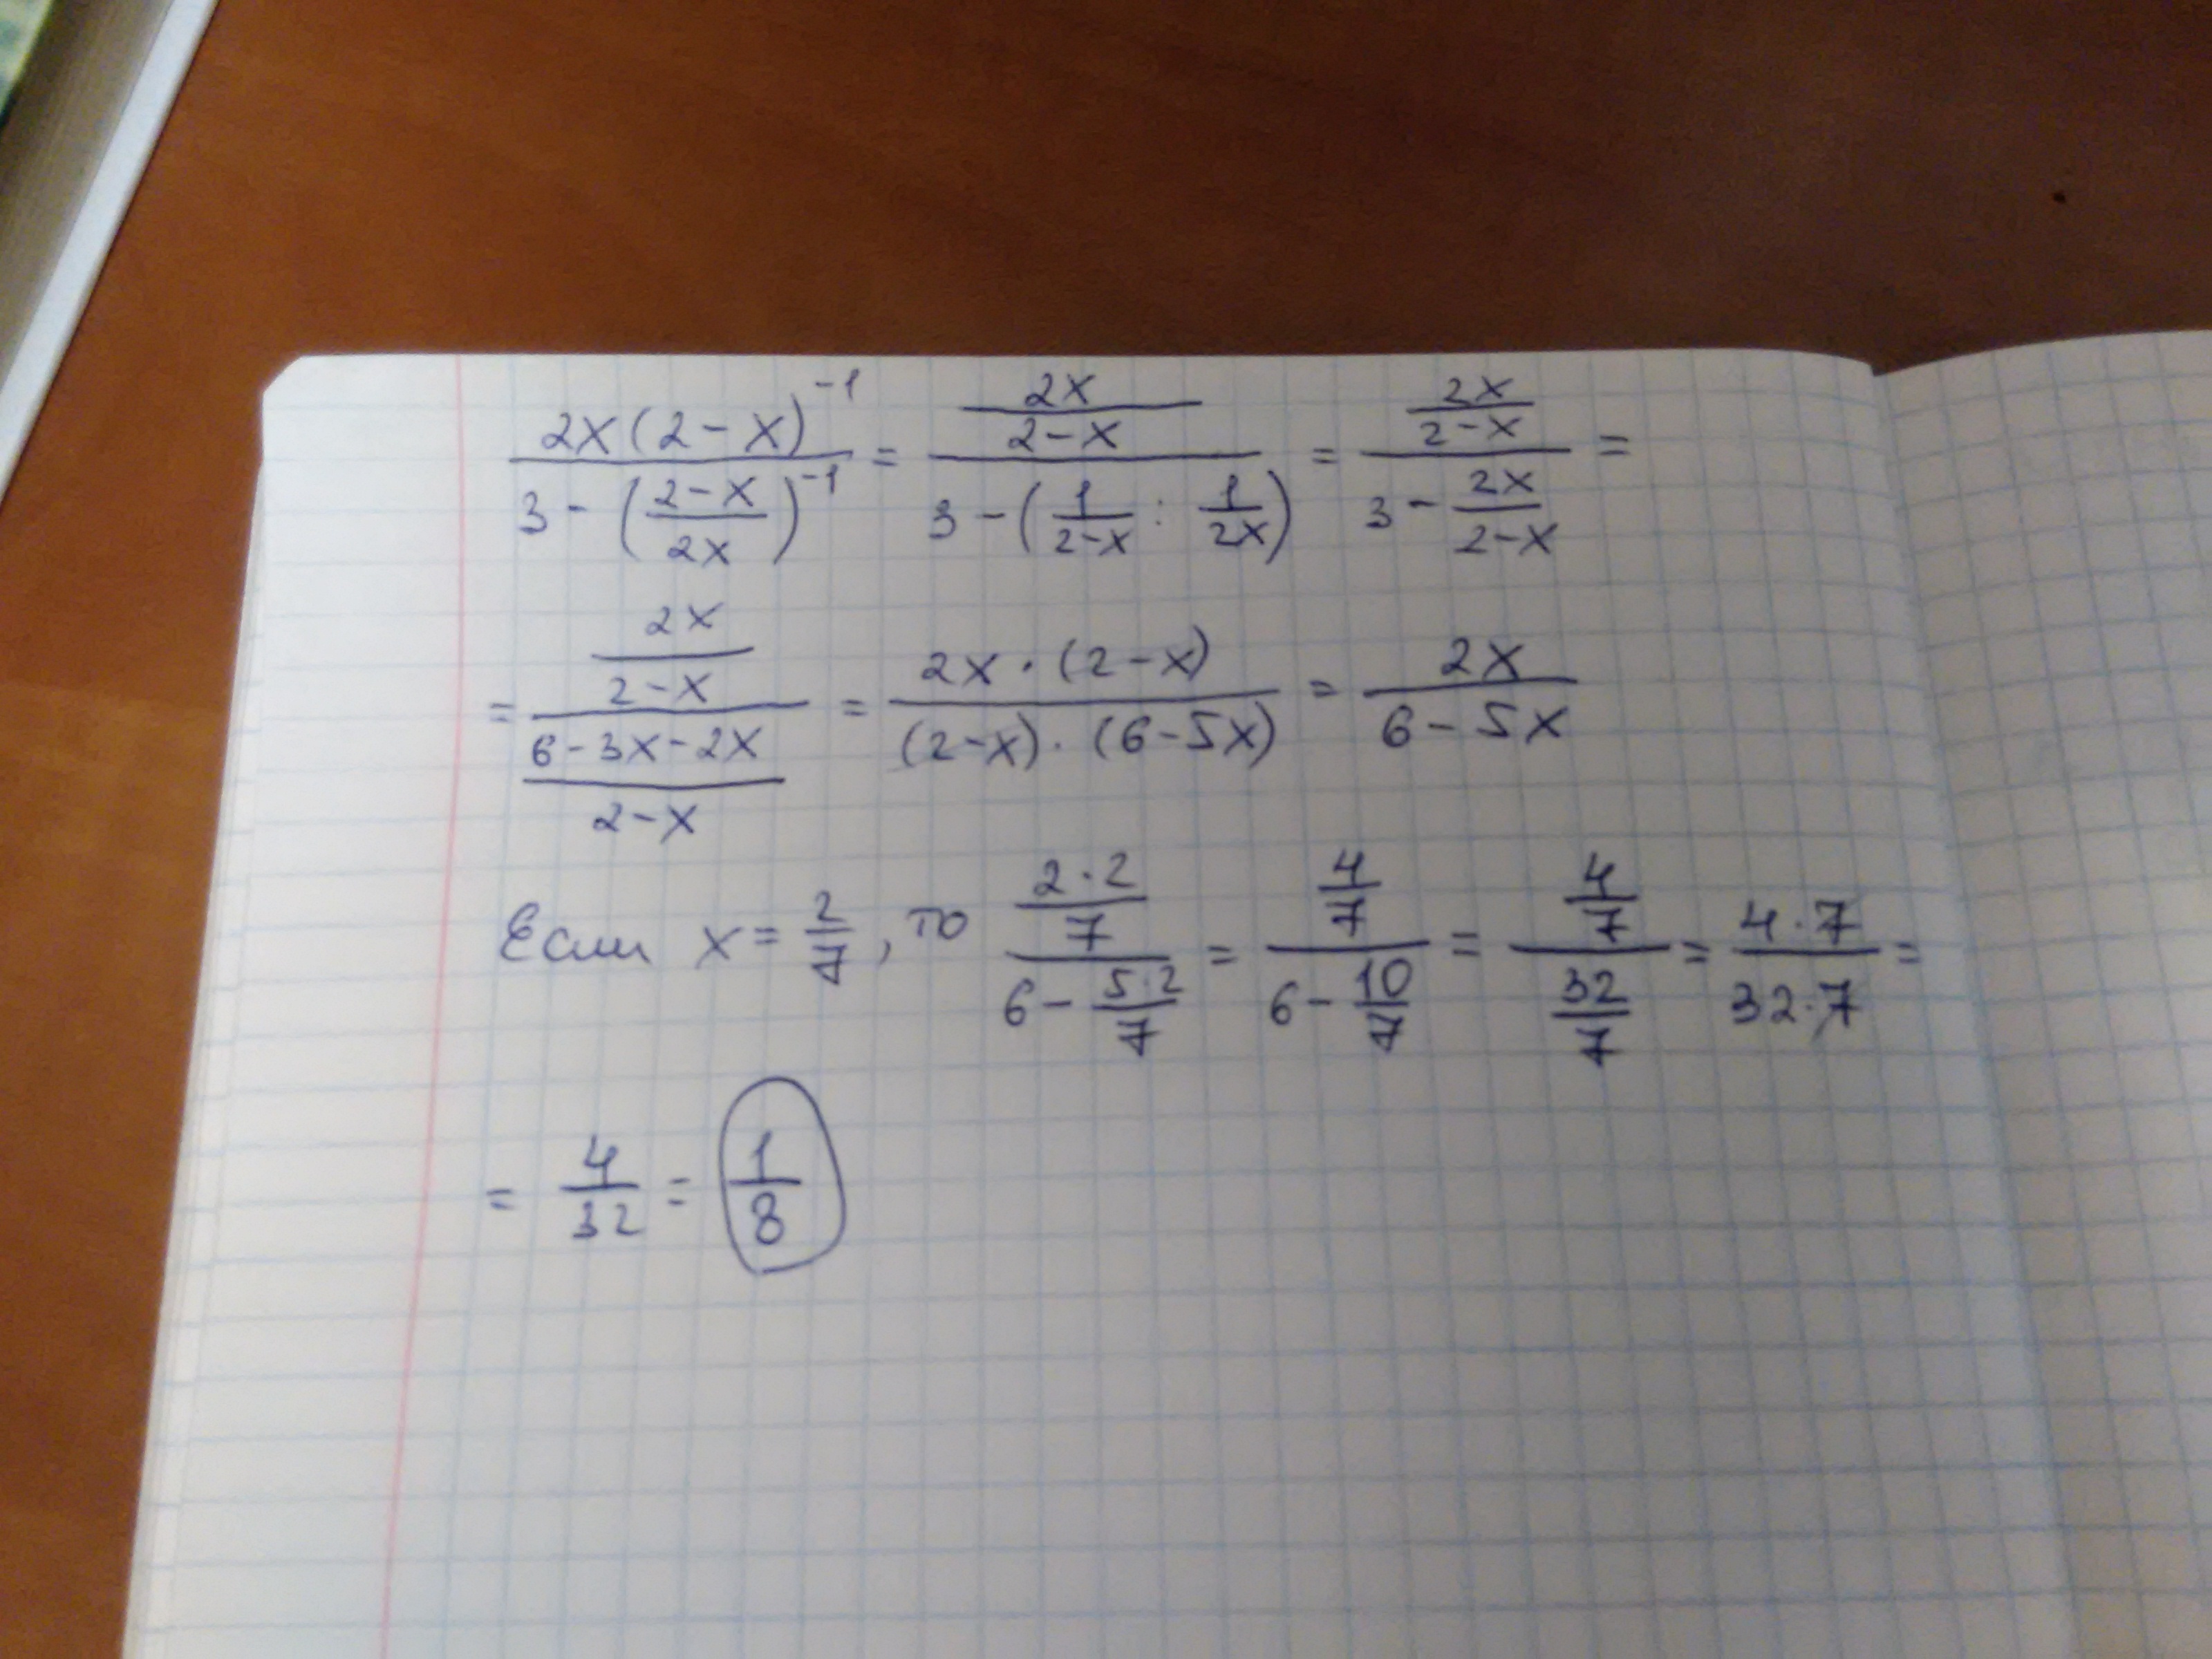 \frac{2x(2-x)^{-1}}{3-\left(\frac{2-x}{2x}\right)^{-1}} = \frac{\frac{2x}{2-x}}{3-\left(\frac{1}{2-x}:\frac{1}{2x}\right)} = \frac{\frac{2x}{2-x}}{3-\frac{2x}{2-x}} =
= \frac{\frac{2x}{2-x}}{\frac{6-3x-2x}{2-x}} = \frac{2x·(2-x)}{(2-x)·(6-5x)} = \frac{2x}{6-5x}
Если x = \frac{2}{7}, то \frac{\frac{2·2}{7}}{6-\frac{5·2}{7}} = \frac{\frac{4}{7}}{6-\frac{10}{7}} = \frac{\frac{4}{7}}{\frac{32}{7}} = \frac{4·7}{32·7} =
= \frac{4}{32} = \frac{1}{8}